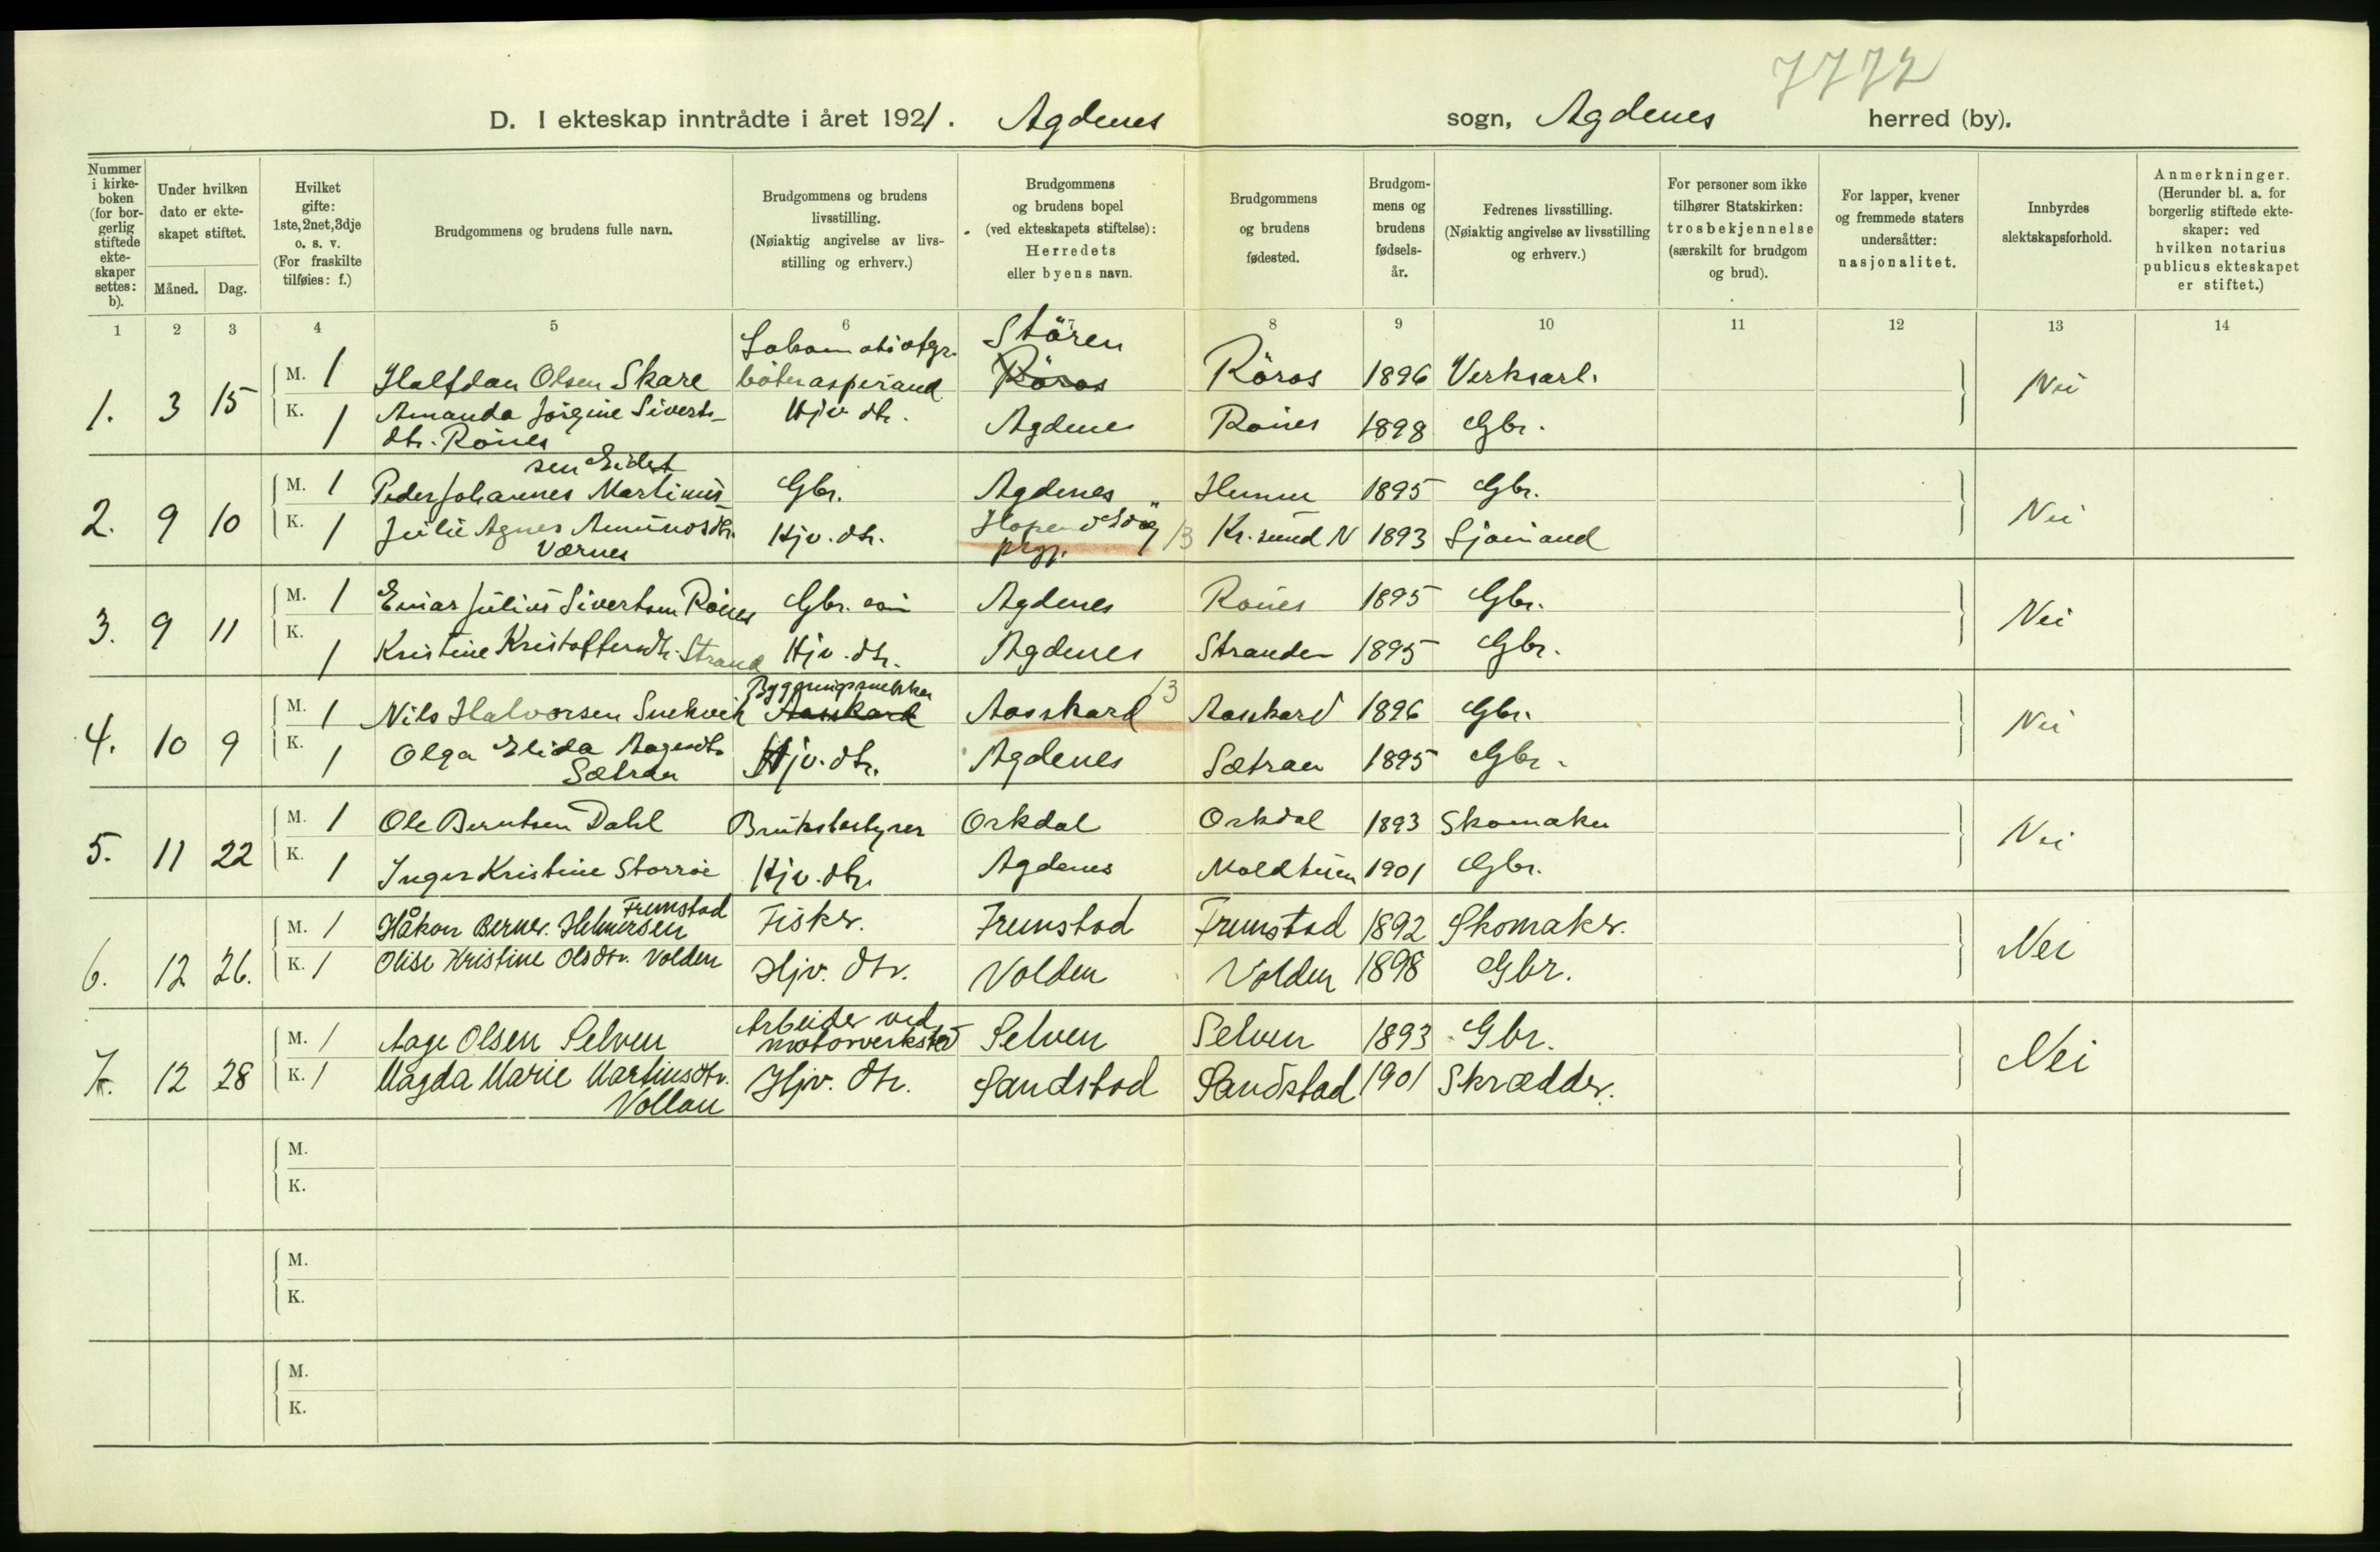 7772
D. I ekteskap inntrådte i året 1921. Agdenes sogn, Agdenes herred (by).
Nummer i kirke-boken (for bor-gerlig stiftede ekte-skaper settes: b).
Under hvilken dato er ekte-skapet stiftet.
Måned. Dag.
Hvilket gifte: 1ste, 2net, 3dje o. s. v. (For fraskilte tilføies: f.)
Brudgommens og brudens fulle navn.
Brudgommens og brudens livsstilling. (Nøiaktig angivelse av livs-stilling og erhverv.)
Brudgommens og brudens bopel (ved ekteskapets stiftelse): Herredets eller byens navn.
Brudgommens og brudens fødested.
Brudgom-mens og brudens fødsels-år.
Fedrenes livsstilling. (Nøiaktig angivelse av livsstilling og erhverv.)
For personer som ikke tilhører Statskirken: trosbekjennelse (særskilt for brudgom og brud).
For lapper, kvener og fremmede staters undersåtter: nasjonalitet.
Innbyrdes slektskapsforhold.
Anmerkninger. (Herunder bl. a. for borgerlig stiftede ekte-skaper: ved hvilken notarius publicus ekteskapet er stiftet.)
1 2 3 4 5 6 7 8 9 10 11 12 13 14
Stören
1. 3 15 M. 1 Halfdan Olsen Skare Röros Röros 1896 Verksarb. Nei
K. 1 Amanda Jörgine Siverts- Hjv. dtr. Agdenes Rönes 1898 Gbr.
dtr. Rönes
sen Eidet
2. 9 10 M. 1 Peder Johannes Martinus Gbr. Agdenes Hemne 1895 Gbr. Nei
K. 1 Julie Agnes Amundsdtr. Hjv. dtr. 13 Kr.sund N 1893 Sjömand
Værnes prgj.
3. 9 11 M. 1 Einar Julius Sivertsen Rönes Gbr. sön Agdenes Rönes 1895 Gbr. Nei
K. 1 Kristine Kristoffersdtr. Strand Hjv. dtr. Agdenes Stranden 1895 Gbr.
Bygningssnekker 13
4. 10 9 M. 1 Nils Halvorsen Snekvik Aasskard Aasskard Aasskard 1896 Gbr. Nei
K. 1 Olga Elida Aagesdtr. Hjv. dtr. Agdenes Sætran 1895 Gbr.
Sætran
5. 11 22 M. 1 Ole Berntsen Dahl Bruksbestyrer Orkdal Orkdal 1893 Skomaker Nei
K. 1 Inger Kristine Storröe Hjv. dtr. Agdenes Moldtuen 1901 Gbr.
Frumstad
6. 12 26. M. 1 Håkon Berner. Helmersen Fisker. Frumstad Frumstad 1892 Skomaker. Nei
K. 1 Olise Kristine Olsdtr. Volden Hjv. dtr. Volden Volden 1898 Gbr.
Arbeider ved
7. 12 28 M. 1 Aage Olsen Selven motorverksted Selven Selven 1893 Gbr. Nei
K. 1 Magda Marie Martinsdtr. Hjv. dtr. Sandstad Sandstad 1901 Skrædder.
Vollan
M.
K.
M.
K.
M.
K.